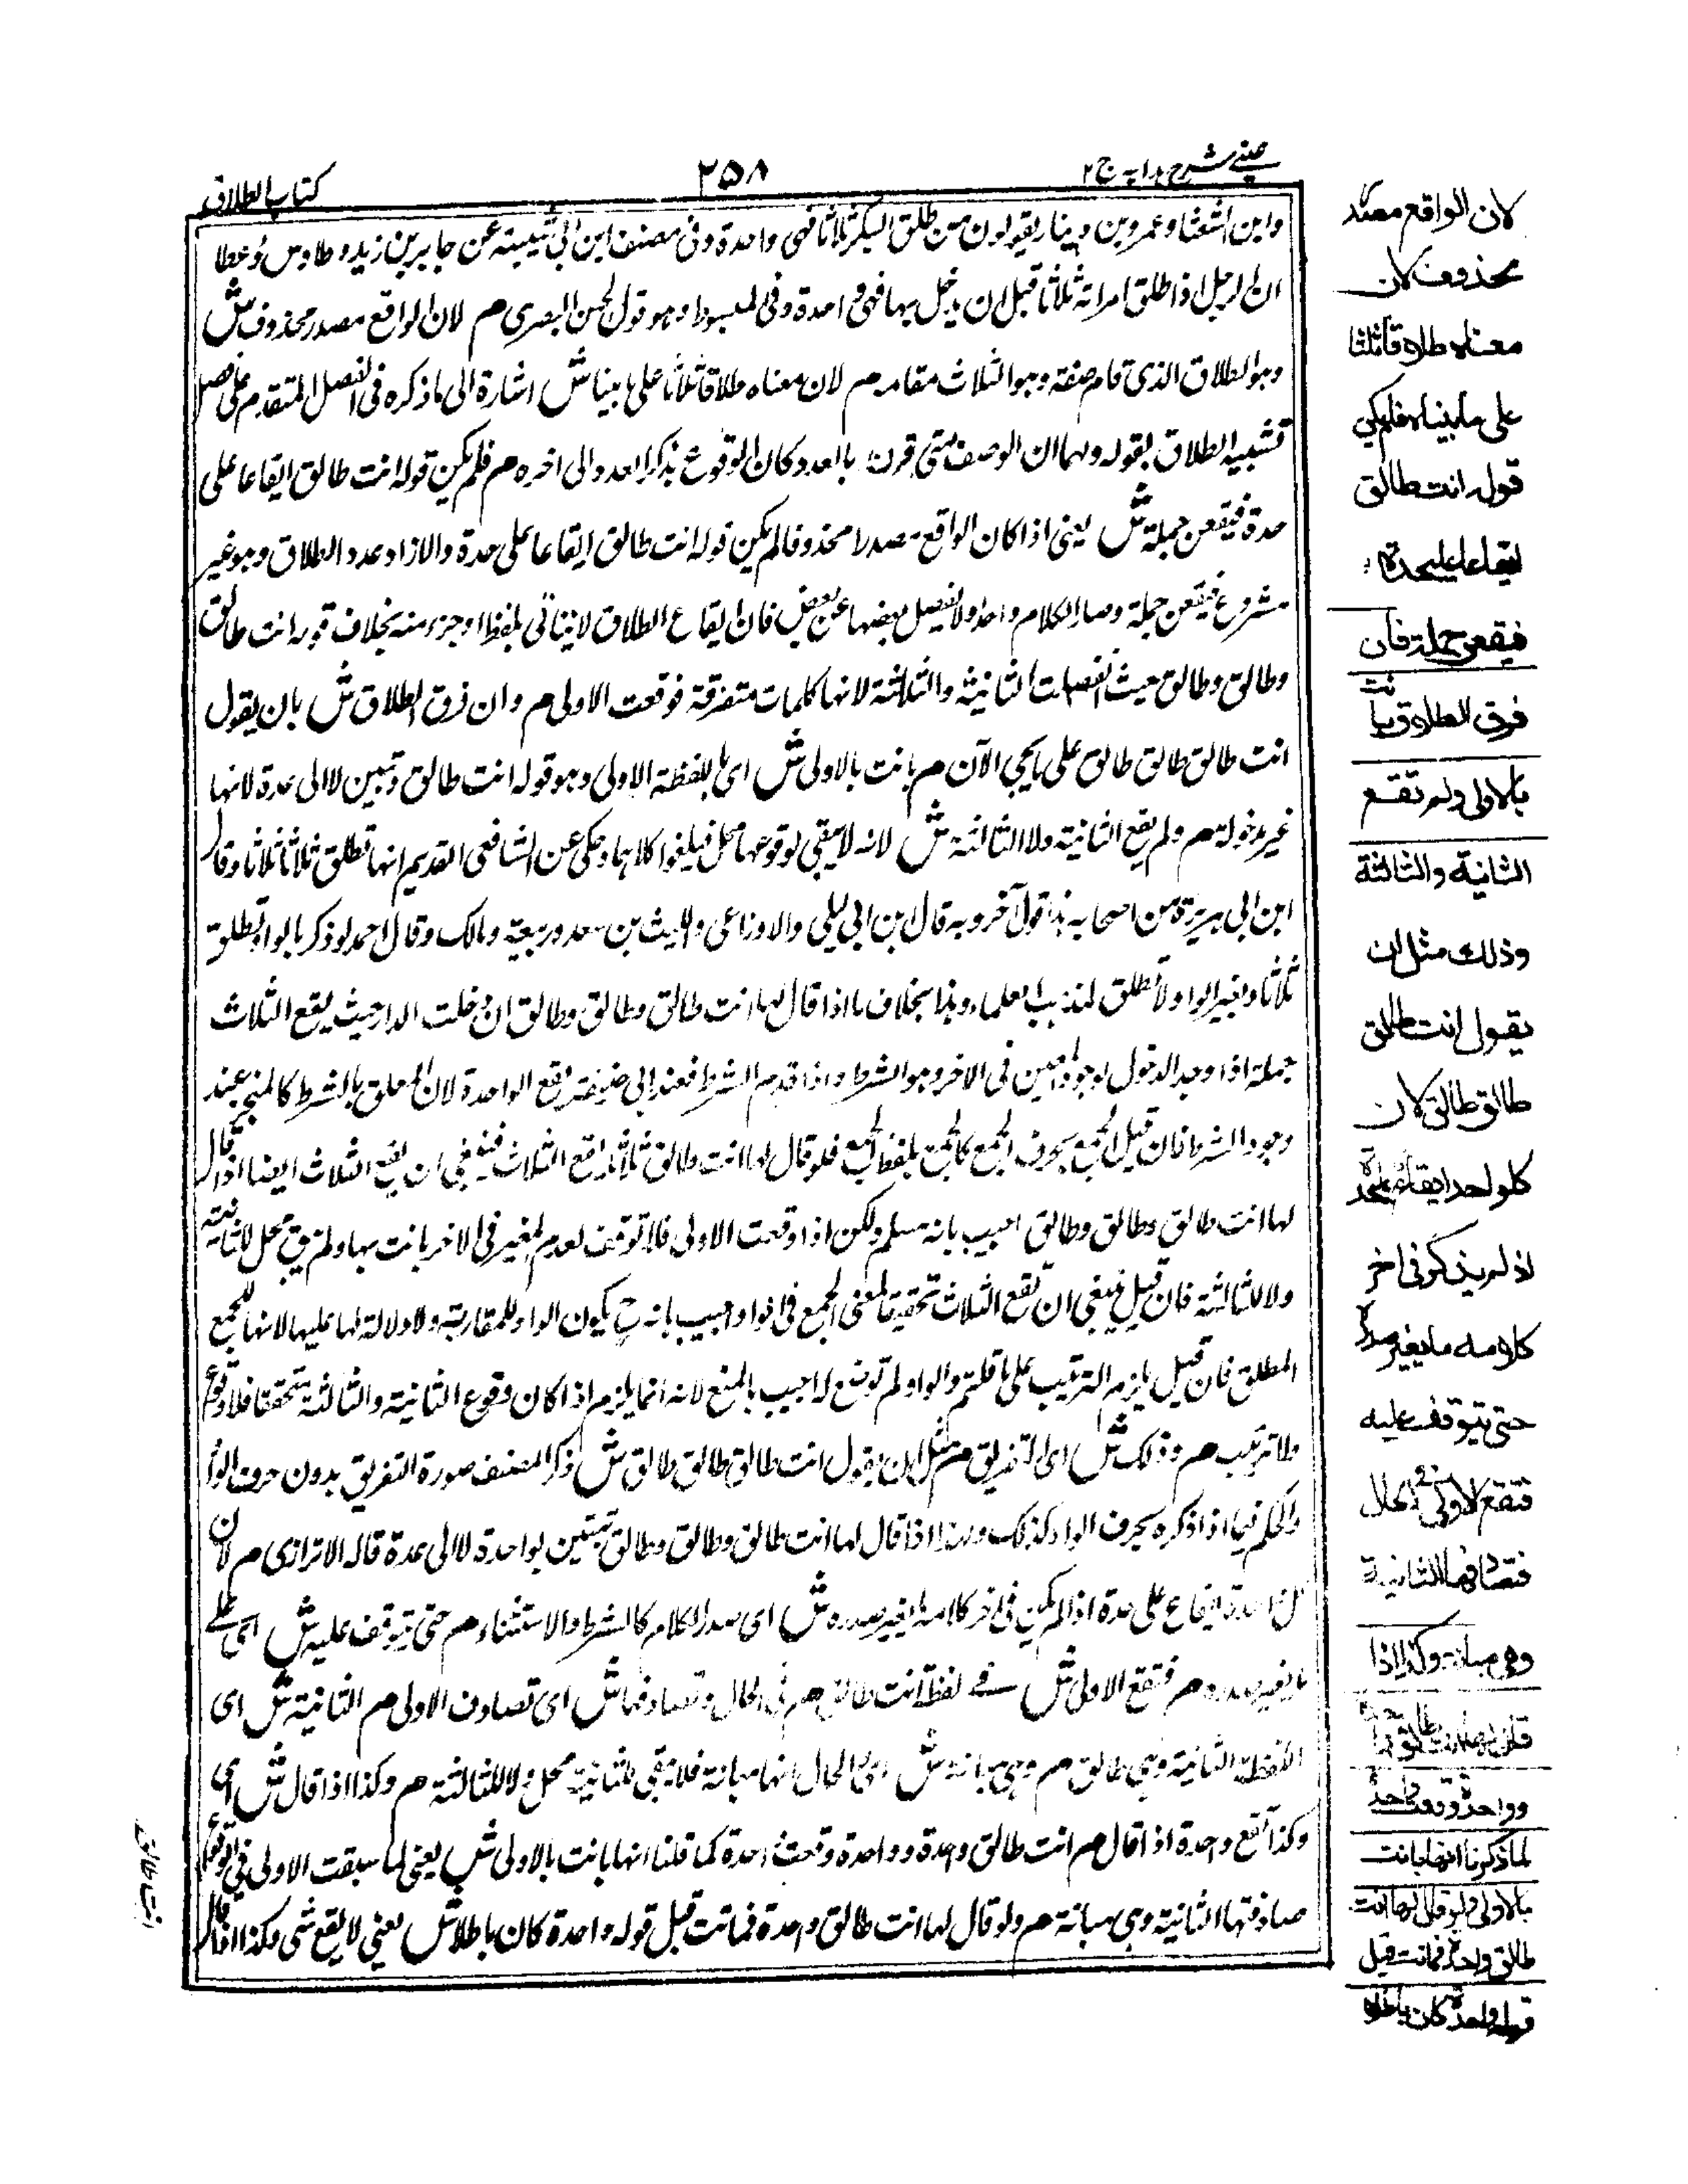 عينى شرح هدايه ج ٢
٢٥٨
كتاب الطلاق
وابن الشعثا وعمرو بن دينار يقولون من طلق البكر ثلاثا فهى واحدة وفى مصنف ابن ابى شيبة عن جابر بن زيد وطاوس وعطا
ان الرجل اذا طلق امراته ثلاثا قبل ان يدخل بها فهى واحدة وفى المبسوط وهو قول الحسن البصرى م لان الواقع مصدر محذوف ش
وهو الطلاق الذى قام صفته وهو الثلاث مقامه م لان معناه طلاقا ثلاثا على ما بينا ش اشارة الى ما ذكره فى الفصل المتقدم على فصل
تشبيه الطلاق بقوله ولهما ان الوصف متى قرن بالعدد كان الوقوع بذكر العدد الى اخره م فلم يكن قوله انت طالق ايقاعا على
حدة فيقعن جملة ش يعنى اذا كان الواقع مصدرا محذوفا لم يكن قوله انت طالق ايقاعا على حدة والا زاد عدد الطلاق وهو غير
مشروع فيقعن جملة وصار الكلام واحدا ولا يفصل بعضها عن بعض فان ايقاع الطلاق لا يتاتى بلفظ اوجز منه بخلاف قوله انت طالق
وطالق وطالق حيث انفصلت الثانية والثالثة لانها كلمات متفرقة فوقعت الاولى م وان فرق الطلاق ش بان يقول
انت طالق طالق طالق على ما يجى الآن م بانت بالاولى ش اى باللفظة الاولى وهو قوله انت طالق وتبين لا الى عدة لانها
غير مدخولة م ولم يقع الثانية ولا الثالثة ش لانه لا يبقى لوقوعها محل فيلغوا كلاهما وحكى عن الشافعى القديم انها تطلق ثلاثا ثلاثا وقال
ابن ابى هريرة من اصحابه هذا قول آخر وبه قال ابن ابى ليلى والاوزاعى والليث بن سعد وربيعة ومالك وقال احمد لو ذكر بالواو تطلق
ثلاثا وبغير الواو لا تطلق لمذهب العلماء وهذا بخلاف ما اذا قال لها انت طالق وطالق وطالق ان دخلت الدار حيث يقع الثلاث
جملة اذا وجد الدخول لوجود المغير فى الاخر وهو الشرط واذا قدم الشرط فعند ابى حنيفة يقع الواحدة لان المعلق بالشرط كالمنجز عند
وجود الشرط فان قيل الجمع بحرف الجمع كالجمع بلفظ الجمع فلو قال لها انت طالق ثلاثا يقع الثلاث فينبغى ان يقع الثلاث ايضا اذا قال
لها انت طالق وطالق وطالق اجيب بانه مسلم ولكن اذا وقعت الاولى فلا توقف لعدم المغير فى الاخر بانت بها ولم يبق محل للثانية
ولا للثالثة فان قيل ينبغى ان تقع الثلاث تحقيقا لمعنى الجمع فى الواو اجيب بانه ح يكون الواو للمقارنة ولا دلالة لها عليها لانها للجمع
المطلق فان قيل يلزم الترتيب على ما قلتم والواو لم توضع له اجيب بالمنع لانه انما يلزم اذا كان وقوع الثانية والثالثة متحققا فلا وقوع
ولا ترتيب م وذلك ش اى التفريق م مثل ان يقول انت طالق طالق طالق ش ذكر المصنف صورة التفريق بدون حرف الواو
والحكم فيما اذا ذكره بحرف الواو كذلك ولهذا اذا قال لها انت طالق وطالق وطالق تبين بواحدة لا الى عدة قاله الاترازى م لان
كل واحدة ايقاع على حدة اذا لم يكن فى اخر كلامه ما يغير صدره ش اى صدر الكلام كالشرط والاستثناء م حتى يتوقف عليه ش اى على
ما يغير صدره م فتقع الاولى ش فى لفظ انت طالق م فى الحال وتصادفها ش اى تصادف الاولى م الثانية ش اى
اللفظة الثانية وهى طالق م وهى مبانة ش اى والحال انها مبانة فلا يبقى للثانية محل ولا للثالثة م وكذا اذا قال ش اى
وكذا تقع واحدة اذا قال م انت طالق واحدة وواحدة وقعت واحدة كما قلنا انها بانت بالاولى ش يعنى لما سبقت الاولى فى الوقوع
صادفتها الثانية وهى مبانة م ولو قال لها انت طالق واحدة فماتت قبل قوله واحدة كان باطلا ش يعنى لا يقع شى وكذا اذا قال
لان الواقع مصدر
محذوف لان
معناه طلاقا ثلثا
على ما بيناه فلم يكن
قوله انت طالق
ايقاعا عليحدة
فيقعن جملة فان
فرق الطلاق بانت
بالاولى ولم تقع
الثانية والثالثة
وذلك مثل ان
يقول انت طالق
طالق طالق لان
كل واحد ايقاع عليحدة
اذ لم يذكر فى اخر
كلامه ما يغير صدره
حتى يتوقف عليه
فتقع الاولى فى الحال
فتصادفها الثانية
وهى مبانة وكذا اذا
قال لها انت طالق واحدة
وواحدة وقعت واحدة
لما ذكرنا انها بانت
بالاولى ولو قال لها انت
طالق واحدة فماتت قبل
قوله واحدة كان باطلا
انت طالق